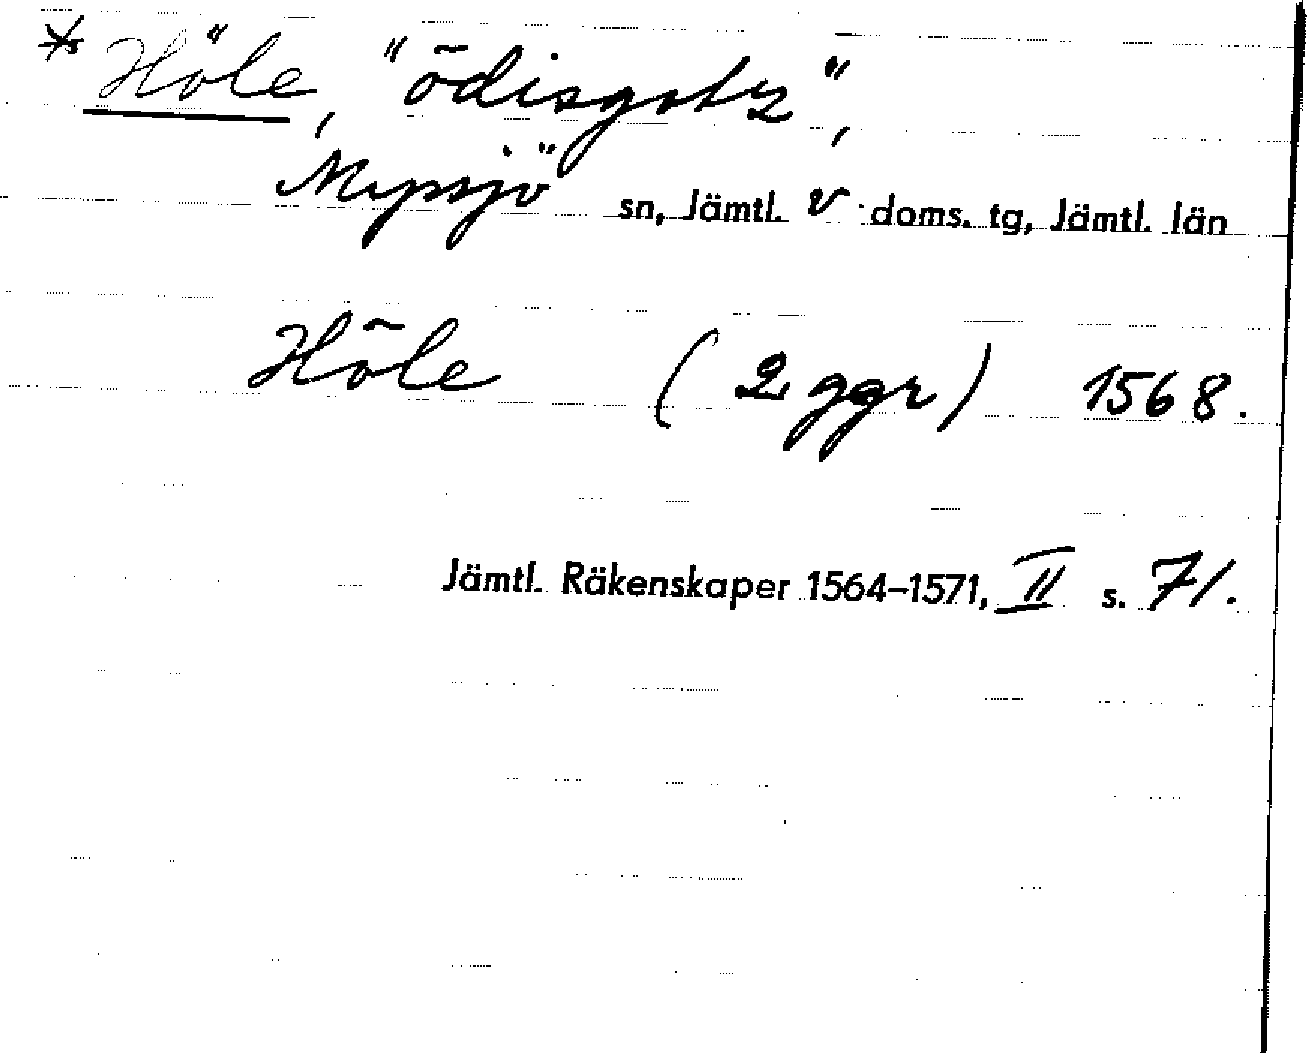 * Höle, "õdisgotz",
Mypsjö sn, Jämtl. v doms. tg, Jämtl. län
Hõle (2 ggr) 1568.
Jämtl. Räkenskaper 1564–1571, II s. 71.